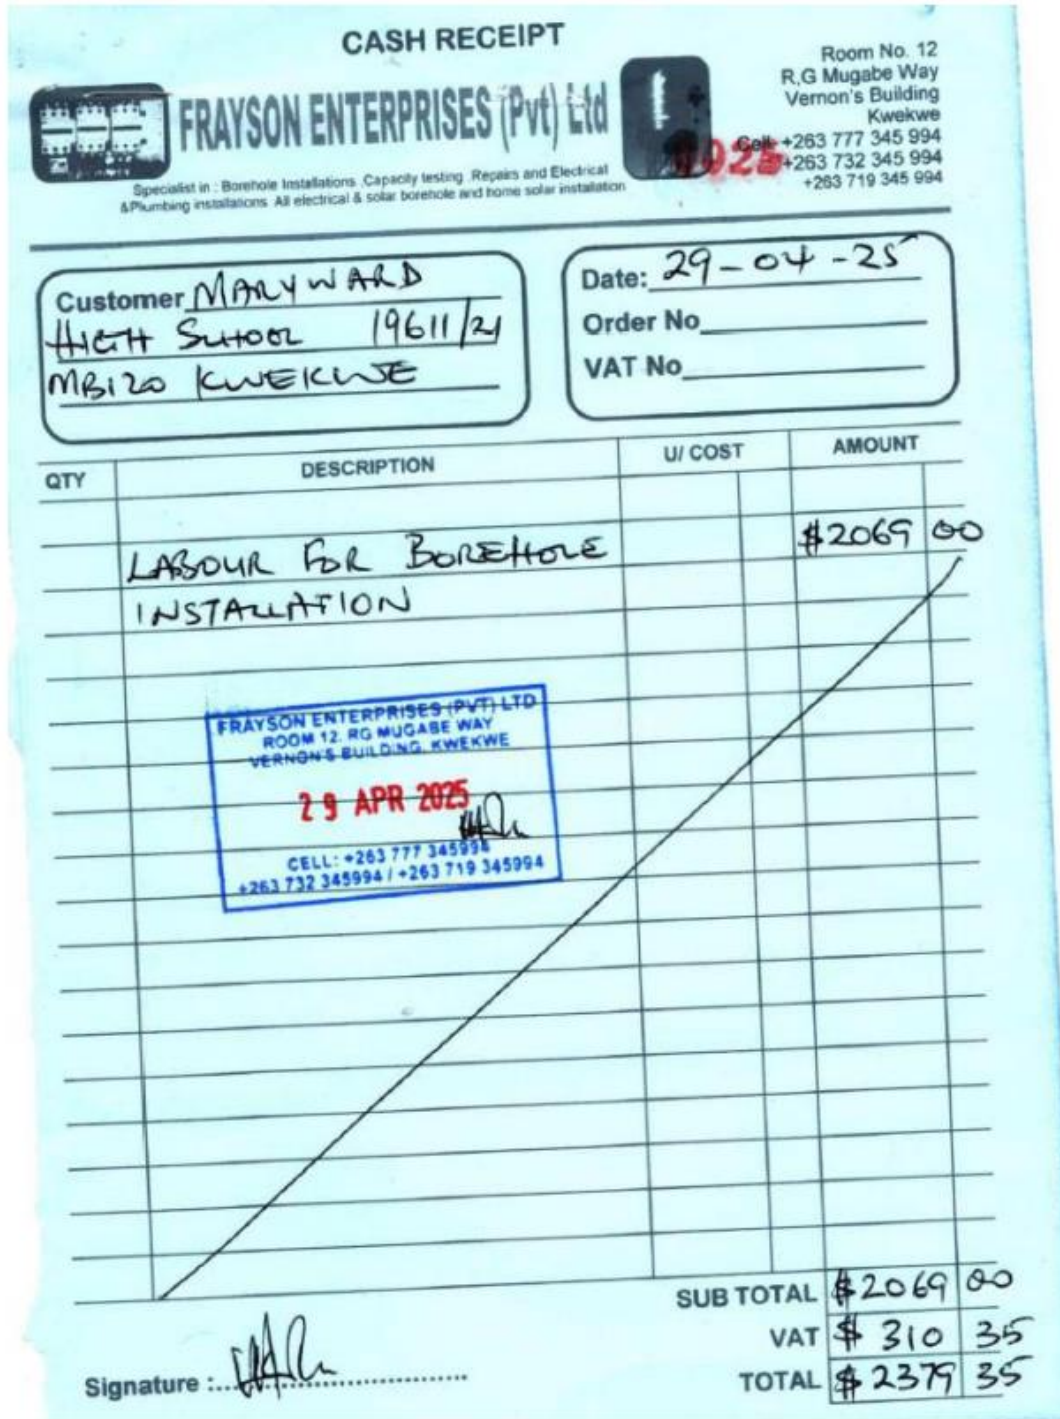 CASH RECEIPT
FRAYSON ENTERPRISES (Pvt) Ltd
Specialist in : Borehole Installations ,Capacity testing ,Repairs and Electrical
&Plumbing installations. All electrical & solar borehole and home solar installation
Room No. 12
R,G Mugabe Way
Vernon's Building
Kwekwe
Cell: +263 777 345 994
+263 732 345 994
+263 719 345 994
Customer MARYWARD
HIGH SCHOOL 19611/21
MBIZO KWEKWE
Date: 29-04-25
Order No
VAT No
QTY DESCRIPTION U/ COST AMOUNT
LABOUR FOR BOREHOLE $2069 00
INSTALLATION
FRAYSON ENTERPRISES (PVT) LTD
ROOM 12. RG MUGABE WAY
VERNON'S BUILDING, KWEKWE
29 APR 2025
CELL: +263 777 345994
+263 732 345994 / +263 719 345994
SUB TOTAL $2069 00
VAT $ 310 35
TOTAL $2379 35
Signature :